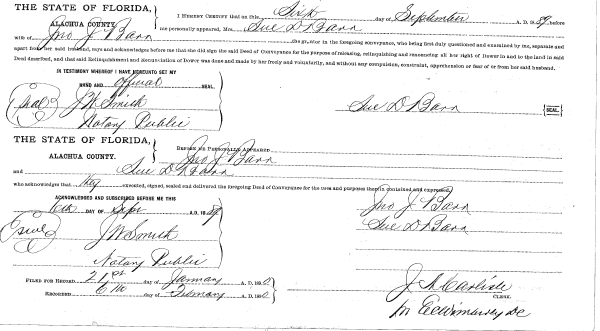 THE STATE OF FLORIDA,
ALACHUA COUNTY.
I HEREBY CERTIFY that on this, Sixth day of September A. D. 1889, before
me personally appeared, Mrs. Sue D. Barr
wife of Jno J Barr the grantor in the foregoing conveyance, who being first duly questioned and examined by me, separate and
apart from her said husband, says and acknowledges before me that she did sign the said Deed of Conveyance for the purpose of releasing, relinquishing and renouncing all her right of Dower in and to the land in said
Deed described, and that said Relinquishment and Renunciation of Dower was done and made by her freely and voluntarily, and without any compulsion, constraint, apprehension or fear of or from her said husband.
IN TESTIMONY WHEREOF I HAVE HEREUNTO SET MY
HAND AND official SEAL.
Seal J W Smith
Notary Public
Sue D Barr SEAL.
THE STATE OF FLORIDA,
ALACHUA COUNTY.
BEFORE ME PERSONALLY APPEARED
Jno J Barr
and Sue D Barr
who acknowledges that they executed, signed, sealed and delivered the foregoing Deed of Conveyance for the uses and purposes therein contained and expressed.
ACKNOWLEDGED AND SUBSCRIBED BEFORE ME THIS
6th DAY OF Sept A.D. 1889
Jno J Barr
Sue D Barr
Seal J W Smith
Notary Public
FILED FOR RECORD 21st day of January A. D. 1890
RECORDED 6th day of February A. D. 1890
J A Carlisle
CLERK.